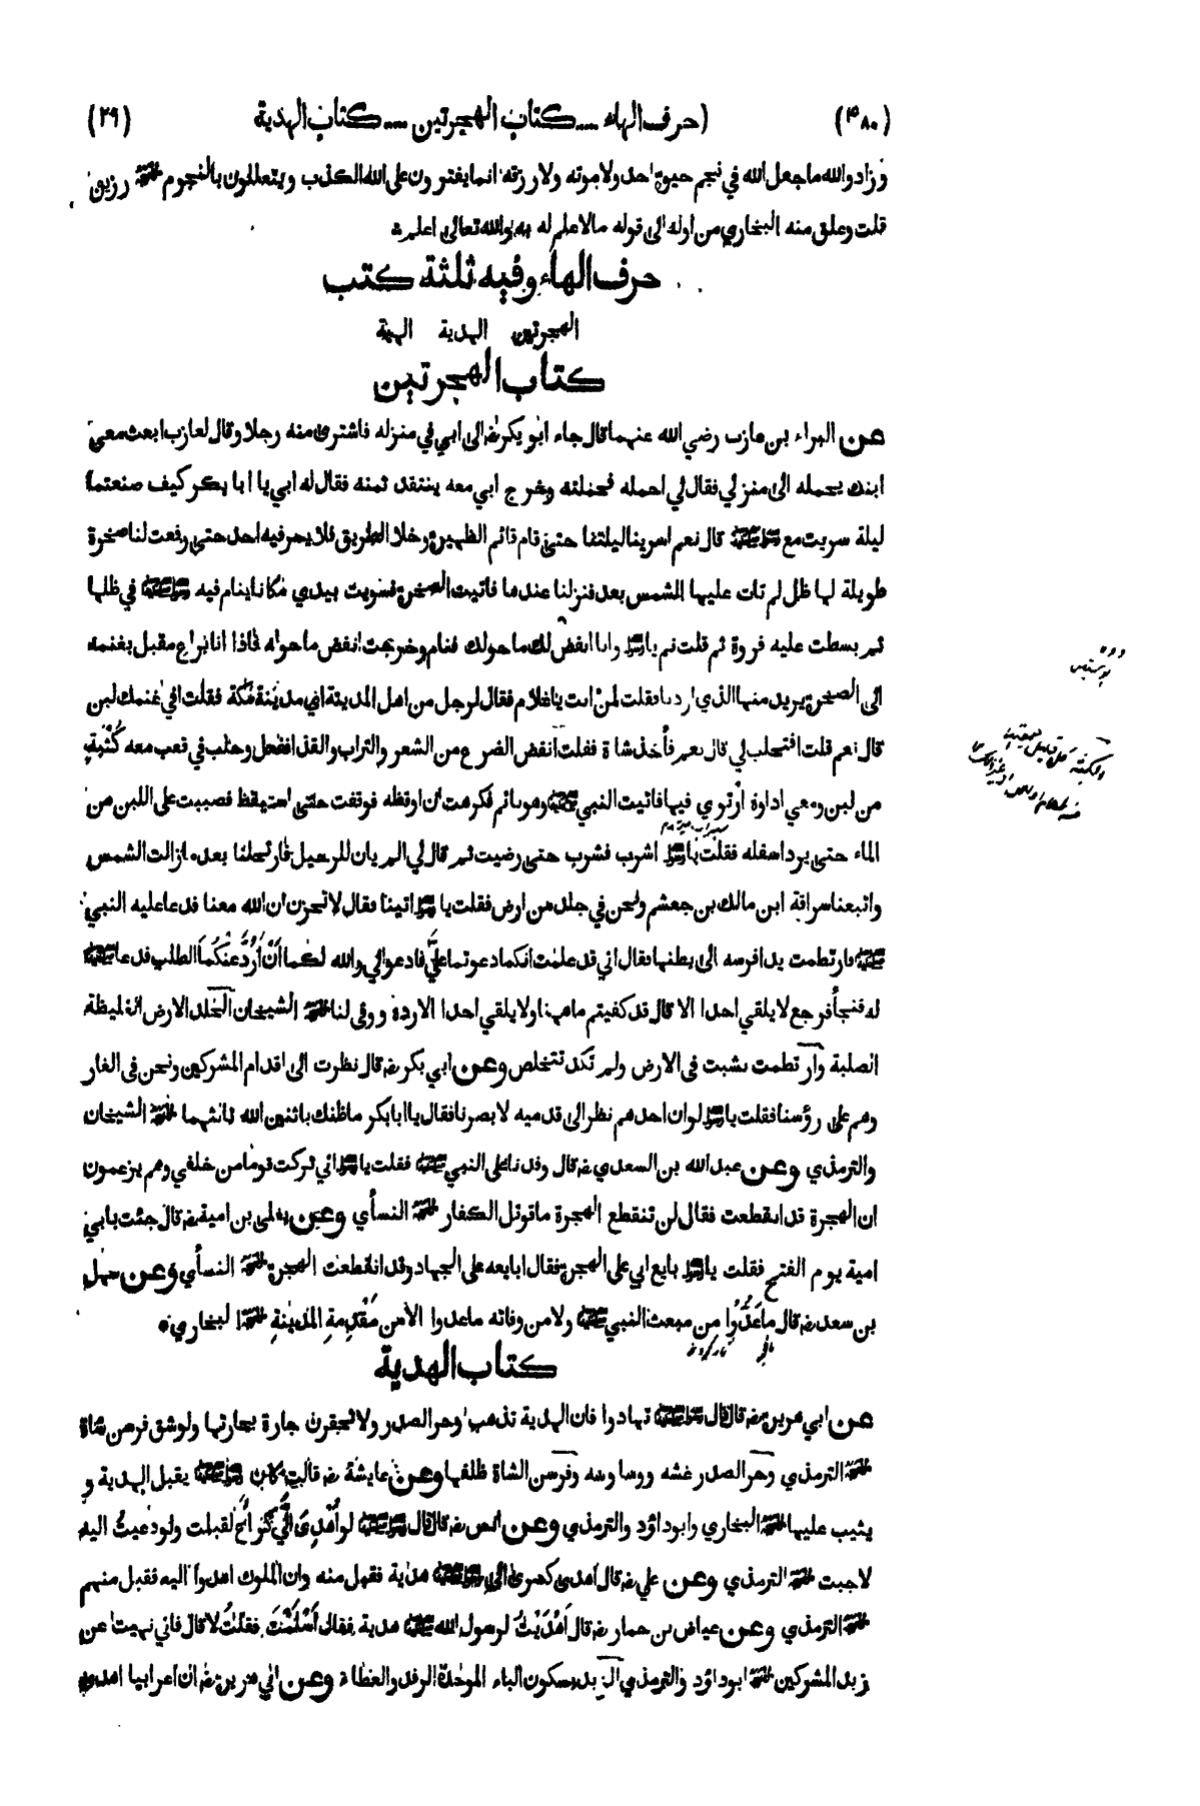 (٤٨٠) (حرف الهاء .... كتاب الهجرتين .... كتاب الهدية (٢٩)
وزاد والله ما جعل الله في نجم حيوة احد ولا موته ولا رزقه انما يفترون على الله الكذب ويتعللون بالنجوم رزين
قلت وعلق منه البخاري من اوله الى قوله مالا علم له به والله تعالى اعلم
حرف الهاء وفيه ثلثة كتب
الهجرتين الهدية الهبة
كتاب الهجرتين
عن البراء بن عازب رضي الله عنهما قال جاء ابو بكر الى ابي في منزله فاشترى منه رحلا وقال لعازب ابعث معي
ابنك يحمله الى منزلي فقال لي احمله فحملته وخرج ابي معه ينتقد ثمنه فقال له ابي يا ابا بكر كيف صنعتما
ليلة سريت مع قال نعم اسرينا ليلتنا حتى قام قائم الظهيرة وخلا الطريق فلا يمر فيه احد حتى رفعت لنا صخرة
طويلة لها ظل لم تات عليها الشمس بعد فنزلنا عندها فاتيت الصخرة فسويت بيدي مكانا ينام فيه في ظلها
ثم بسطت عليه فروة ثم قلت نم يا وانا انفض لك ما حولك فنام وخرجت انفض ما حوله فاذا انا براع مقبل بغنمه
الى الصخرة يريد منها الذي اردنا فقلت لمن انت يا غلام فقال لرجل من اهل المدينة اي مدينة مكة فقلت افي غنمك لبن
قال نعم قلت افتحلب لي قال نعم فأخذ شاة فقلت انفض الضرع من الشعر والتراب والقذا ففعل وحلب في قعب معه كُثْبَة
من لبن ومعي اداوة ارتوي فيها فاتيت النبي وهو نائم فكرهت ان اوقظه فوقفت حتى استيقظ فصببت على اللبن من
الماء حتى برد اسفله فقلت يا اشرب فشرب حتى رضيت ثم قال لي الم يان للرحيل فارتحلنا بعد ما زالت الشمس
واتبعنا سراقة ابن مالك بن جعشم ونحن في جلد من ارض فقلت يا اتينا فقال لا تحزن ان الله معنا فدعا عليه النبي
فارتطمت يدا فرسه الى بطنها فقال اني قد علمت انكما دعوتما عليَّ فادعوا لي والله لكما أَنْ أَرُدَّ عَنْكُمَا الطلب فدعا
له فنجأ فرجع لا يلقي احدا الا قال قد كفيتم ما ههنا ولا يلقي احدا الا رده ووفى لنا الشيخان الجلد الارض الغليظة
الصلبة وارتطمت نشبت في الارض ولم تكد تتخلص وعن ابي بكر قال نظرت الى اقدام المشركين ونحن في الغار
وهم على رؤسنا فقلت يا لو ان احدهم نظر الى قدميه لابصرنا فقال يا ابا بكر ما ظنك باثنين الله ثالثهما الشيخان
والترمذي وعن عبد الله بن السعدي قال وفدنا على النبي فقلت يا اني تركت قوما من خلفي وهم يزعمون
ان الهجرة قد انقطعت فقال لن تنقطع الهجرة ما قوتل الكفار النسأي وعن يعلى بن امية قال جئت بابي
امية يوم الفتح فقلت يا بايع ابي على الهجرة فقال ابايعه على الجهاد وقد انقطعت الهجرة النسأي وعن سهل
بن سعد قال ما عَدُّوا من مبعث النبي ولا من وفاته ما عدوا الا من مَقْدِمِهِ المدينةِ البخاري
كتاب الهدية
عن ابي هريرة قال قال تهادوا فان الهدية تذهب وحر الصدر ولا تحقرن جارة بجارتها ولو شق فرسن شاة
الترمذي وحر الصدر غشه ووساوسه وفرسن الشاة ظلفها وعن عايشة قالت كان يقبل الهدية و
يثيب عليها البخاري وابو داؤد والترمذي وعن انس قال قال لو أُهْدِيَ الَيَّ كراع لقبلت ولو دعيت اليه
لاجبت الترمذي وعن علي قال اهدى كسرى الى هدية فقبل منه وان الملوك اهدوا اليه فقبل منهم
الترمذي وعن عياض بن حمار قال أَهْدَيْتُ لرسول الله هدية فقال أَسْلَمْتَ فقلت لا قال فاني نهيت عن
زبد المشركين ابو داؤد والترمذي الزبد بسكون الباء الموحدة الرفد والعطاء وعن ابي هريرة ان اعرابيا اهدى